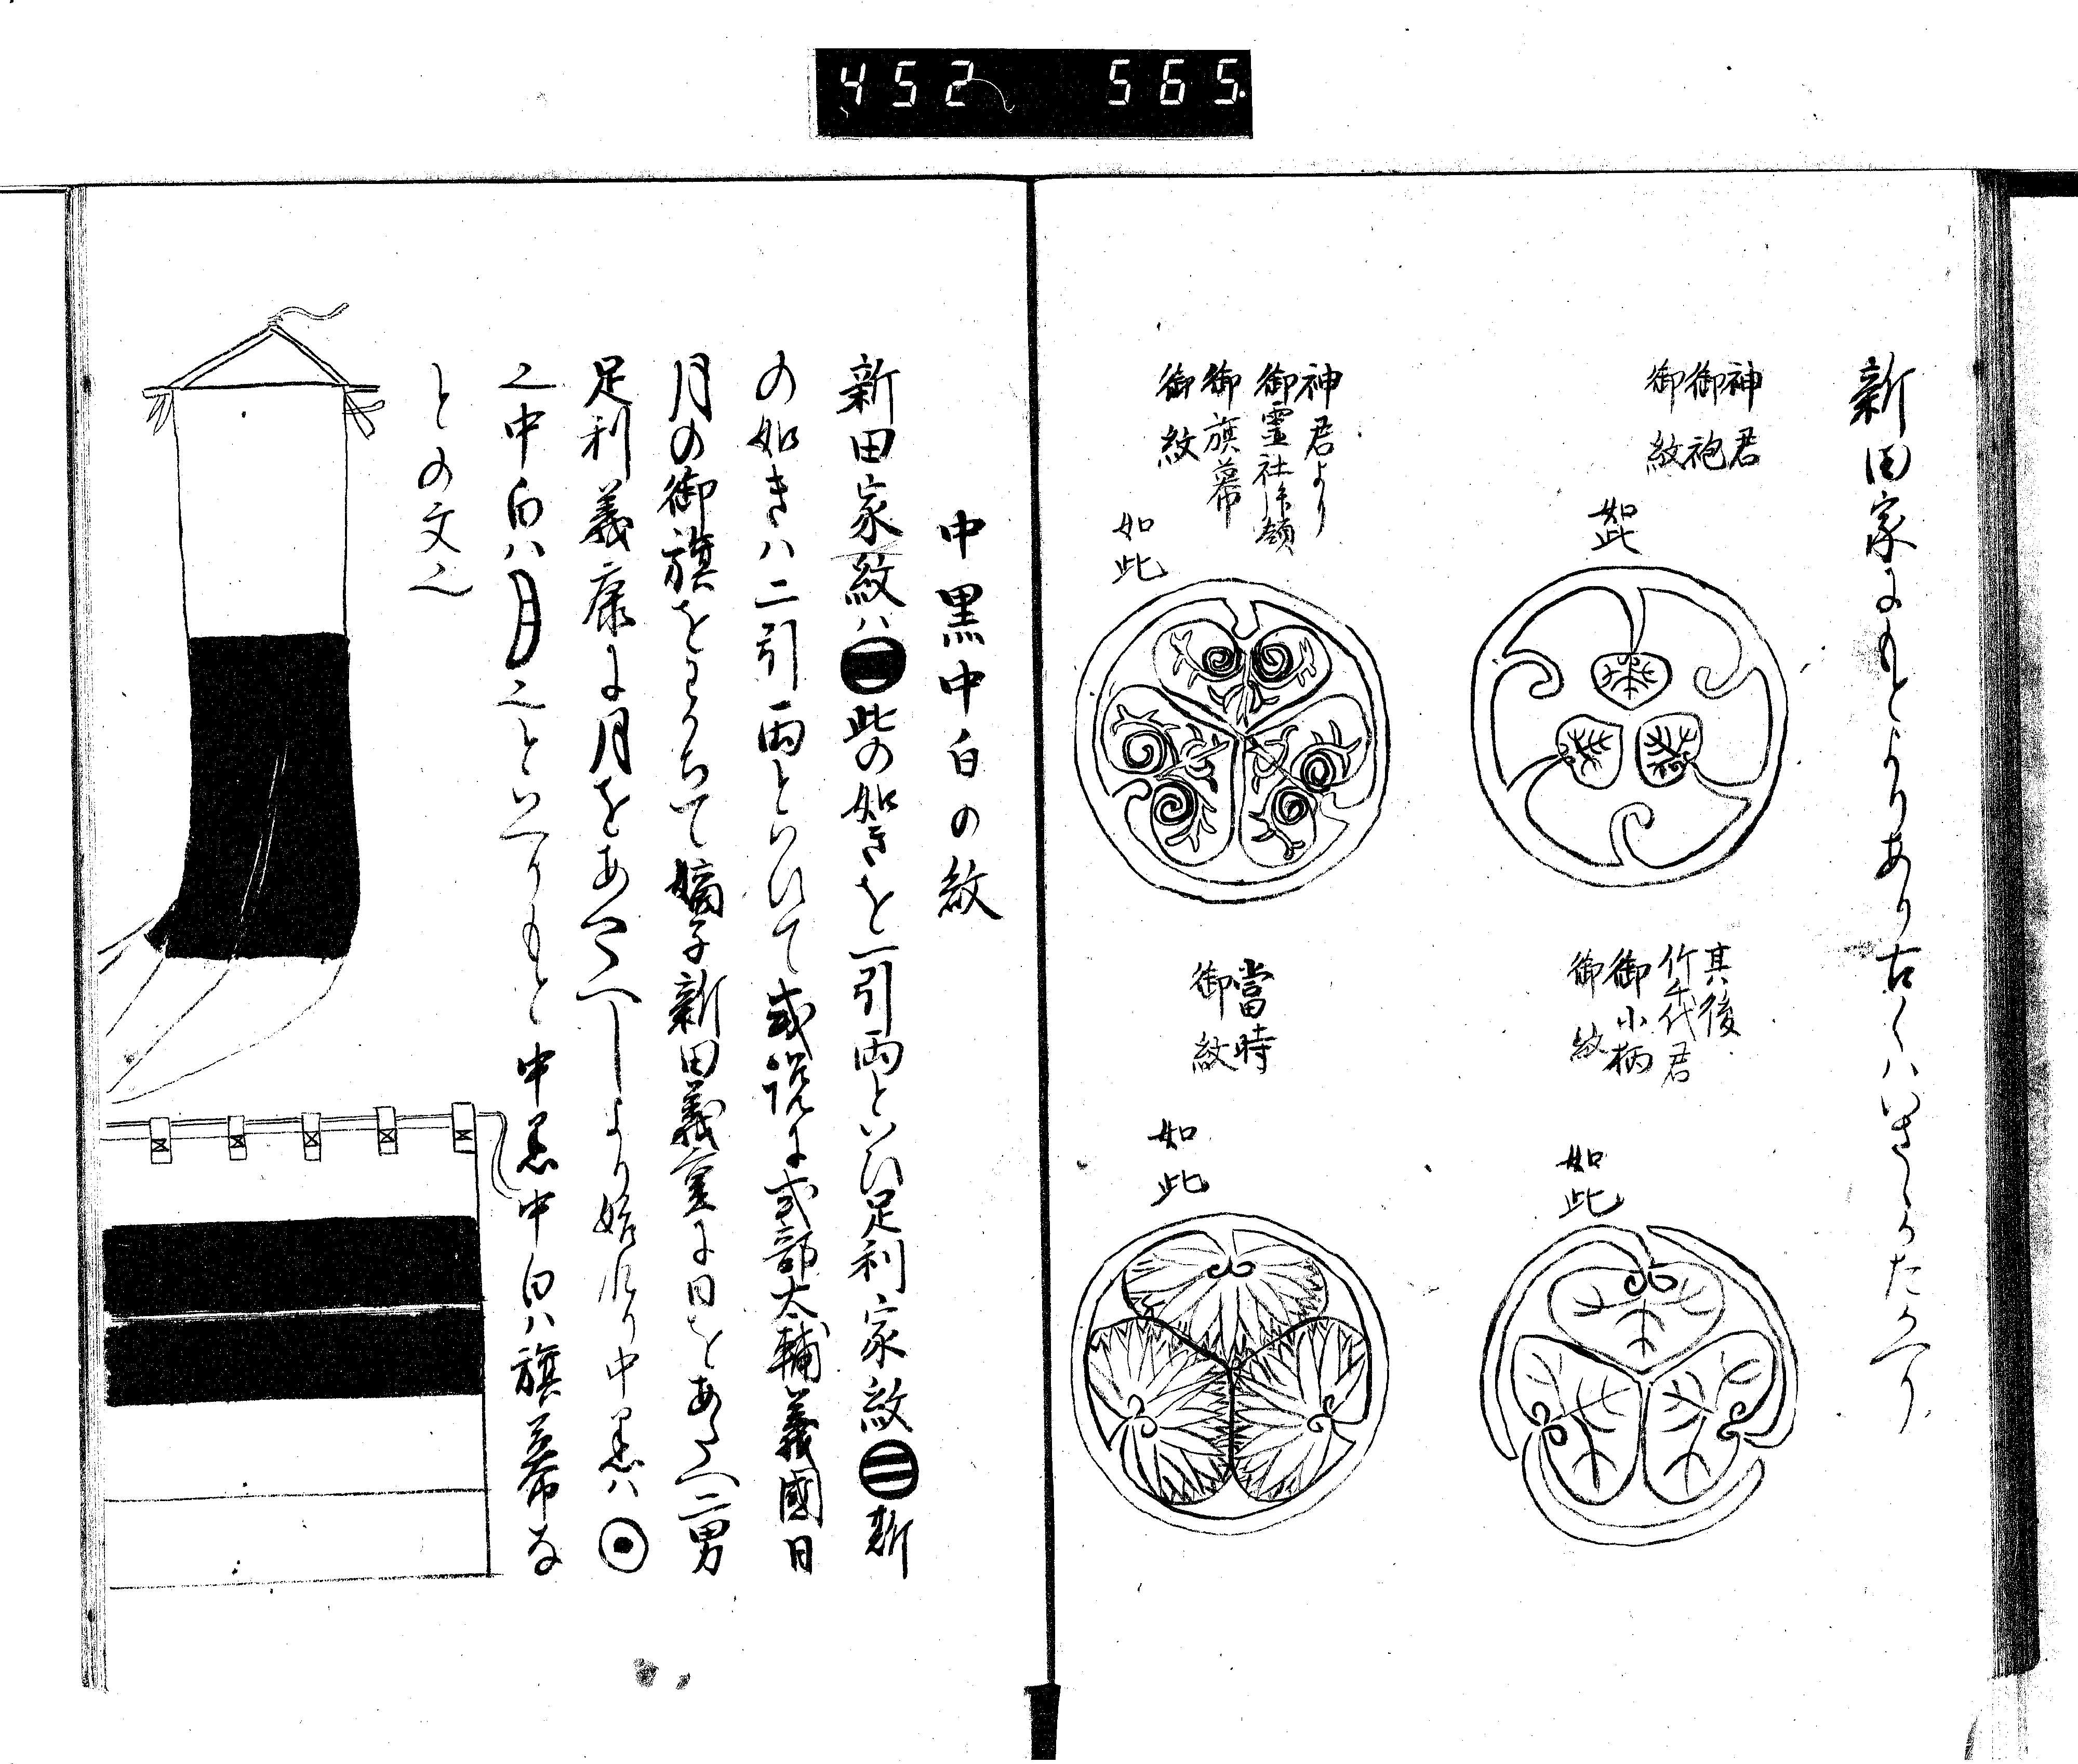 452 565
新田家にもとよりあり古くハいさゝかたかへり
神君
御袍
御紋
如此
其後
竹千代君
御小柄
御紋
如此
神君より
御霊社江御奉額
御旗幕
御紋
如此
當時
御紋
如此
中黒中白の紋
新田家紋ハ此の如きを一引両といひ足利家紋新
の如きハ二引両といひて或説に式部太輔義國日
月の御旗をわかちて嫡子新田義重に日をあたへ二男
足利義康に月をあたへしより始れり中黒ハ
之中白ハ月之といへりもと中黒中白ハ旗幕な
との文之